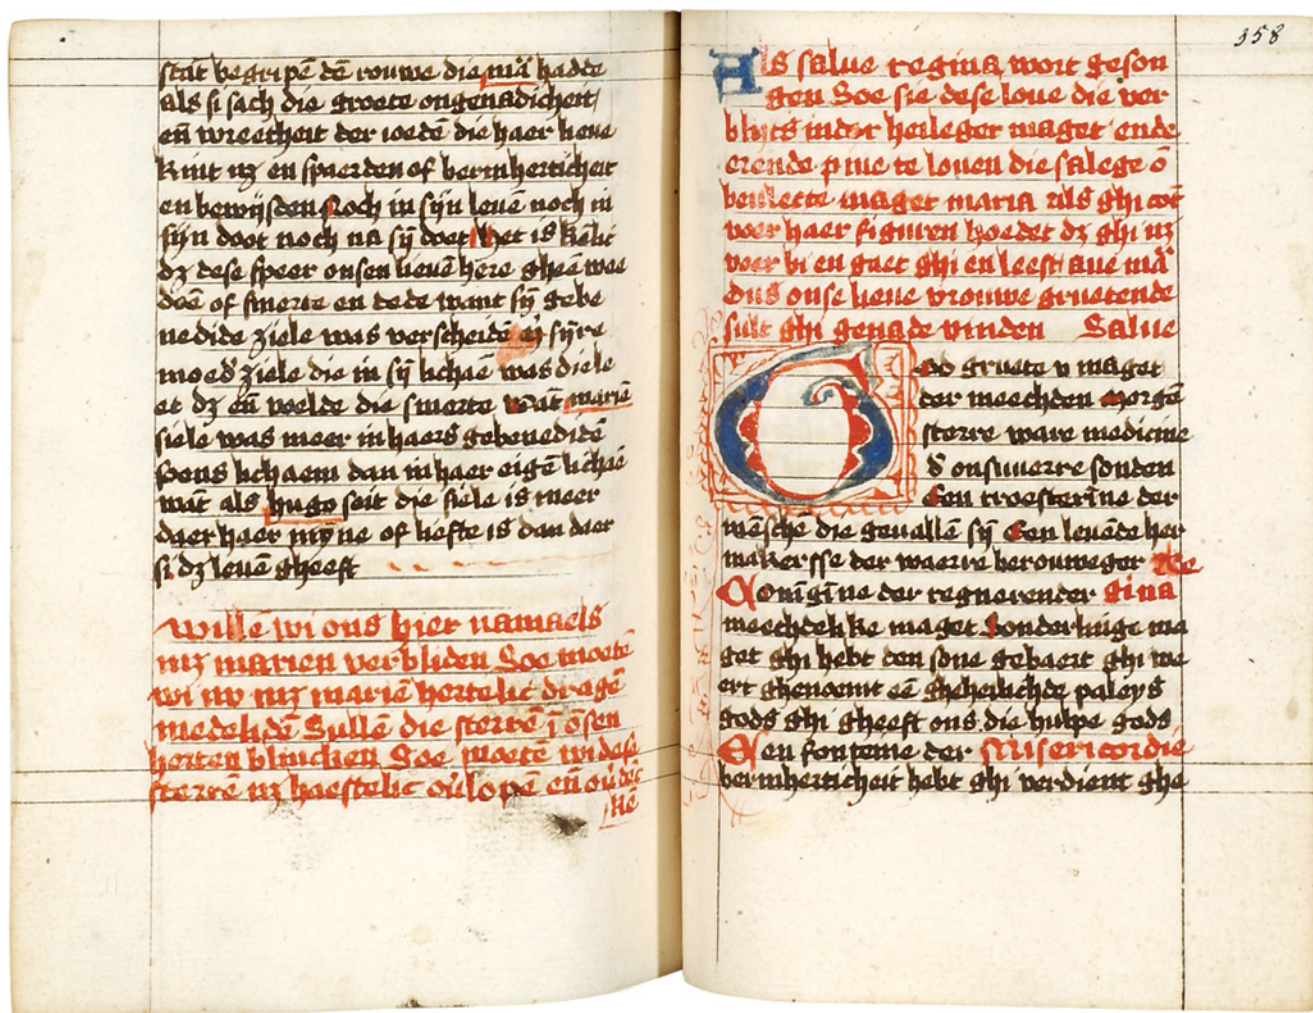 stat begripē dē rouwe die mā hadde
als si sach die groete ongenadicheit
eñ wreetheit der ioedē die haer lieue
kint nz en spaerden of bermherticheit
en bewijsden Noch in sijn leuē noch in
sijn doot noch na sȳ doet Het is kēlic
dz dese speer onsen lieuē here gheē wee
doē of smerte en dede want sȳ gebe
nedide ziele was verscheidē sȳre
moed ziele die in sȳ lichāe was diele
et dz eñ voelde die smerte wāt mariē
siele was meer in haers gebenedidē
soens lichaem dan in haer eigē lichāe
wāt als hugo seit die siele is meer
daer haer mȳne of liefte is dan daer
si dz leuē gheeft
Willē wi ons hier namaels
mz marien verbliden Soe moetē
wi nv mz mariē hertelic dragē
medelidē Sullē die sterrē ī ōsen
herten blincken Soe moetē wi dese
sterrē nz haestelic ouˀlopē eñ ouˀdēc
kē
358
Als salue regina wort geson
gen Soe sie dese loue die ver
blijts inder heileger maget ende
erende pine te louen die salege ō
beulecte maget maria Als ghi cōt
voer haer figuren hoedet dz ghi nz
voer bi en gaet ghi en leest aue mā
dus onse lieue vrouwe gruetende
sult ghi genade vinden Salue
God gruete v maget
der meechden Morgē
sterre ware medicine
d onsuuerre sonden
Een troesterīne der
mēschē die geuallē sȳ Een leuēde her
makersse der waerre berouweger Re
Conīgīne der regnerender gina
meechdelike maget Sonderlinge ma
get ghi hebt den sone gebaert ghi we
ert ghenoemt eē gheheilichde paleys
gods ghi gheeft ons die hulpe gods
Een fonteine der Misericordie
bermherticheit hebt ghi verdient ghe